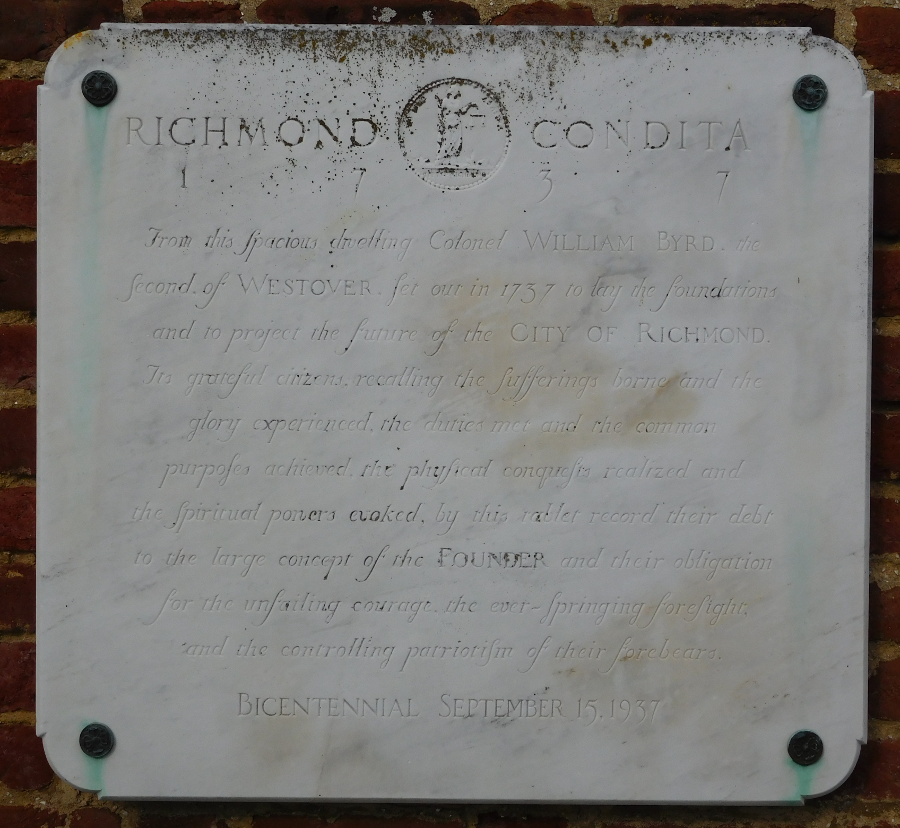 RICHMOND CONDITA
1 7 3 7
From this ſpacious dwelling Colonel WILLIAM BYRD, the
ſecond, of WESTOVER, ſet out in 1737 to lay the ſoundations
and to project the ſuture of the CITY OF RICHMOND.
Its grateful citizens, recalling the ſufferings borne and the
glory experienced, the duties met and the common
purpoſes achieved, the phyſical conqueſts realized and
the ſpiritual powers evoked, by this tablet record their debt
to the large concept of the FOUNDER and their obligation
for the unfailing courage, the ever-ſpringing foreſight,
and the controlling patriotiſm of their forebears.
BICENTENNIAL SEPTEMBER 15, 1937